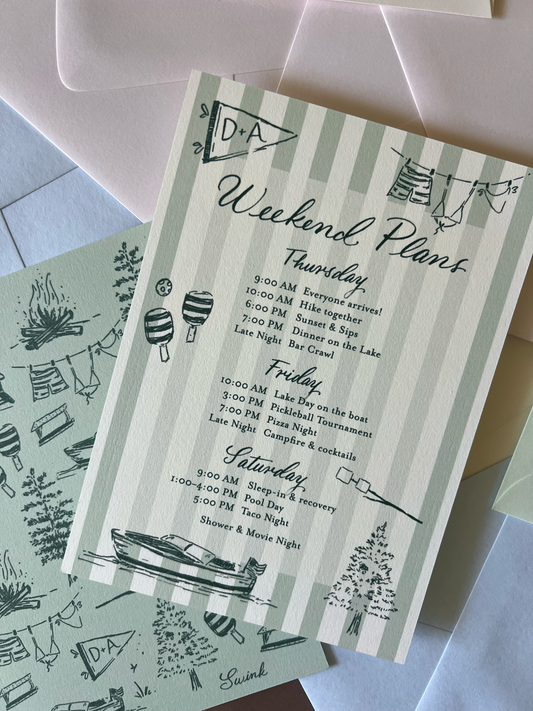 D+A
Weekend Plans
Thursday
9:00 AM Everyone arrives!
10:00 AM Hike together
6:00 PM Sunset & Sips
7:00 PM Dinner on the Lake
Late Night Bar Crawl
Friday
10:00 AM Lake Day on the boat
3:00 PM Pickleball Tournament
7:00 PM Pizza Night
Late Night Campfire & cocktails
Saturday
9:00 AM Sleep-in & recovery
1:00-4:00 PM Pool Day
5:00 PM Taco Night
Shower & Movie Night
D+A
Swink